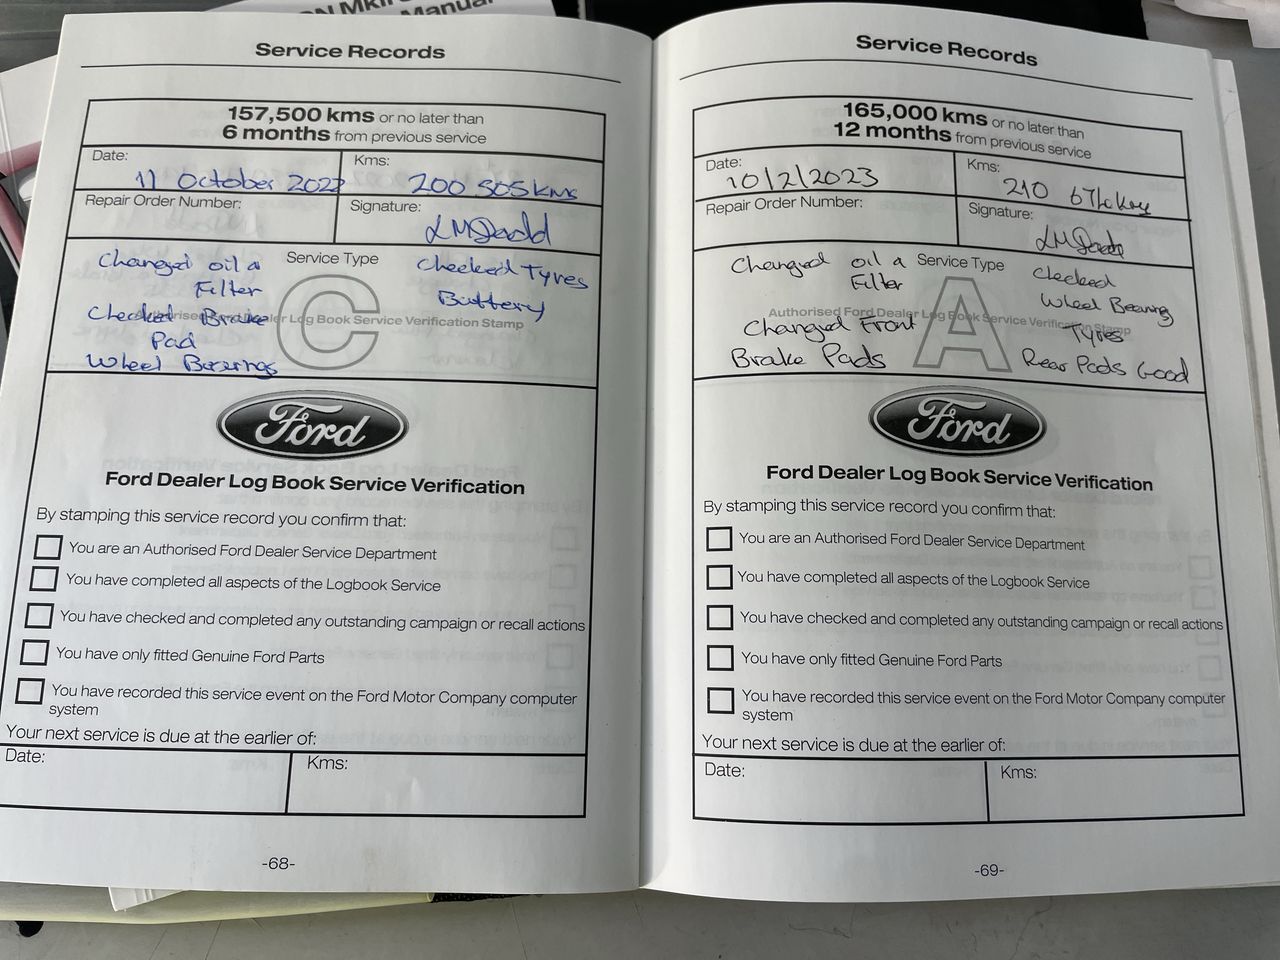 ON MkII
Manual
Service Records
157,500 kms or no later than
6 months from previous service
Date:
11 October 2022
Kms:
200 505 kms
Repair Order Number:
Signature:
Service Type
Changed oil a
Filter
Checked Brake
Pad
Wheel Bearings
Checked Tyres
Battery
C
Authorised Ford Dealer Log Book Service Verification Stamp
Ford
Ford Dealer Log Book Service Verification
By stamping this service record you confirm that:
You are an Authorised Ford Dealer Service Department
You have completed all aspects of the Logbook Service
You have checked and completed any outstanding campaign or recall actions
You have only fitted Genuine Ford Parts
You have recorded this service event on the Ford Motor Company computer
system
Your next service is due at the earlier of:
Date:
Kms:
-68-
Service Records
165,000 kms or no later than
12 months from previous service
Date:
10/2/2023
Kms:
210
Repair Order Number:
Signature:
Service Type
Changed oil a
Filter
Changed Front
Brake Pads
Checked
Wheel Bearing
Tyres
Rear Pads Good
A
Authorised Ford Dealer Log Book Service Verification Stamp
Ford
Ford Dealer Log Book Service Verification
By stamping this service record you confirm that:
You are an Authorised Ford Dealer Service Department
You have completed all aspects of the Logbook Service
You have checked and completed any outstanding campaign or recall actions
You have only fitted Genuine Ford Parts
You have recorded this service event on the Ford Motor Company computer
system
Your next service is due at the earlier of:
Date:
Kms:
-69-